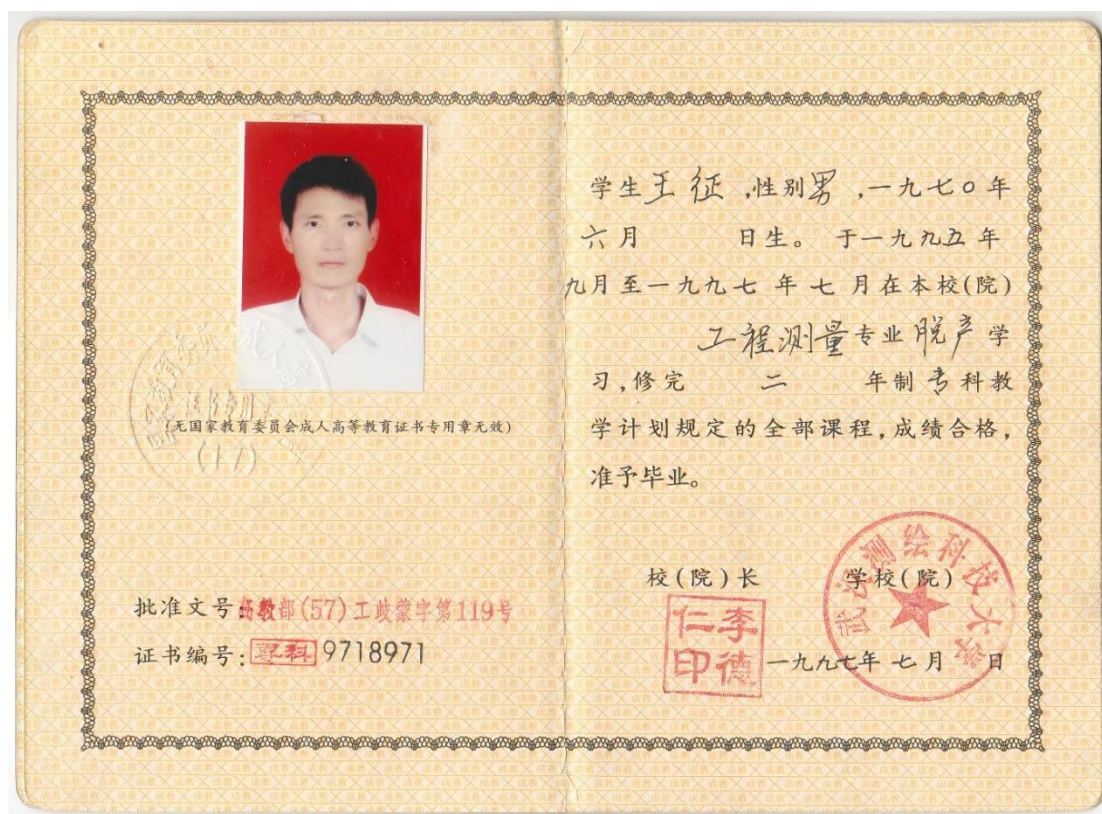 (无国家教育委员会成人高等教育证书专用章无效)
(17)
批准文号:高教部(57)工歧蒙字第119号
证书编号: 9718971
学生王征,性别男,一九七〇年
六月 日生。于一九九五年
九月至一九九七年七月在本校(院)
工程测量专业脱产学
习,修完 二 年制专科教
学计划规定的全部课程,成绩合格,
准予毕业。
校(院)长 学校(院)
李德仁印
武汉测绘科技大学
一九九七年七月 日